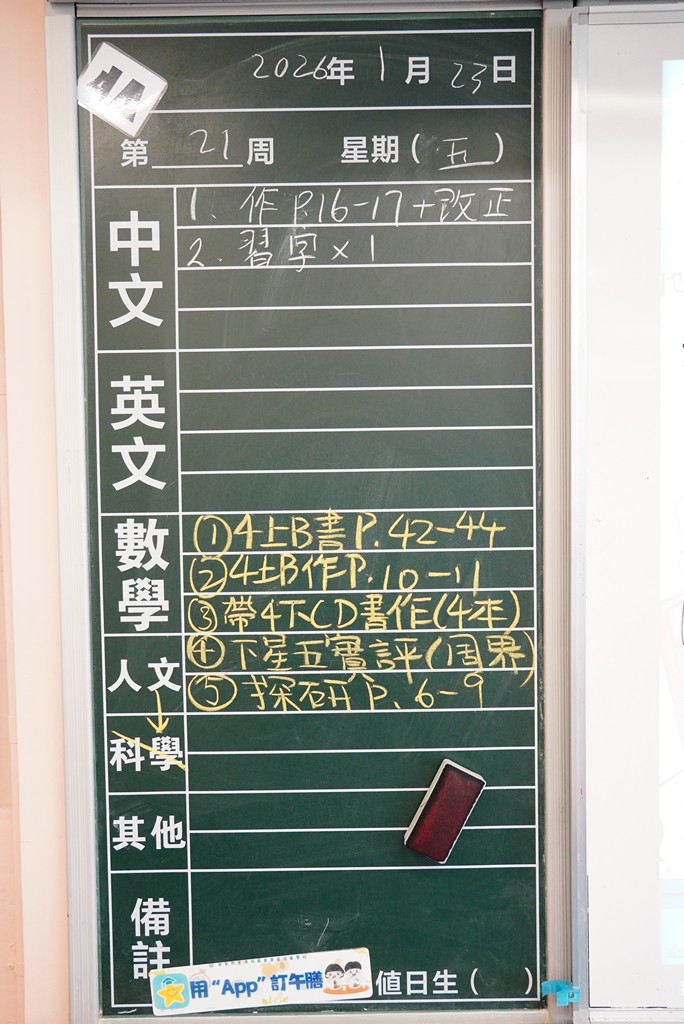 4A
2026年 1月 23日
第 21 周 星期(五)
中文
1. 作P.16-17+改正
2. 習字×1
英文
數學
①4上B書P.42-44
②4上B作P.10-11
③帶4下CD書作(4本)
人文
④下星五實評(周界)
⑤探研P.6-9
科學
其他
備註
用“App”訂午膳
值日生( )